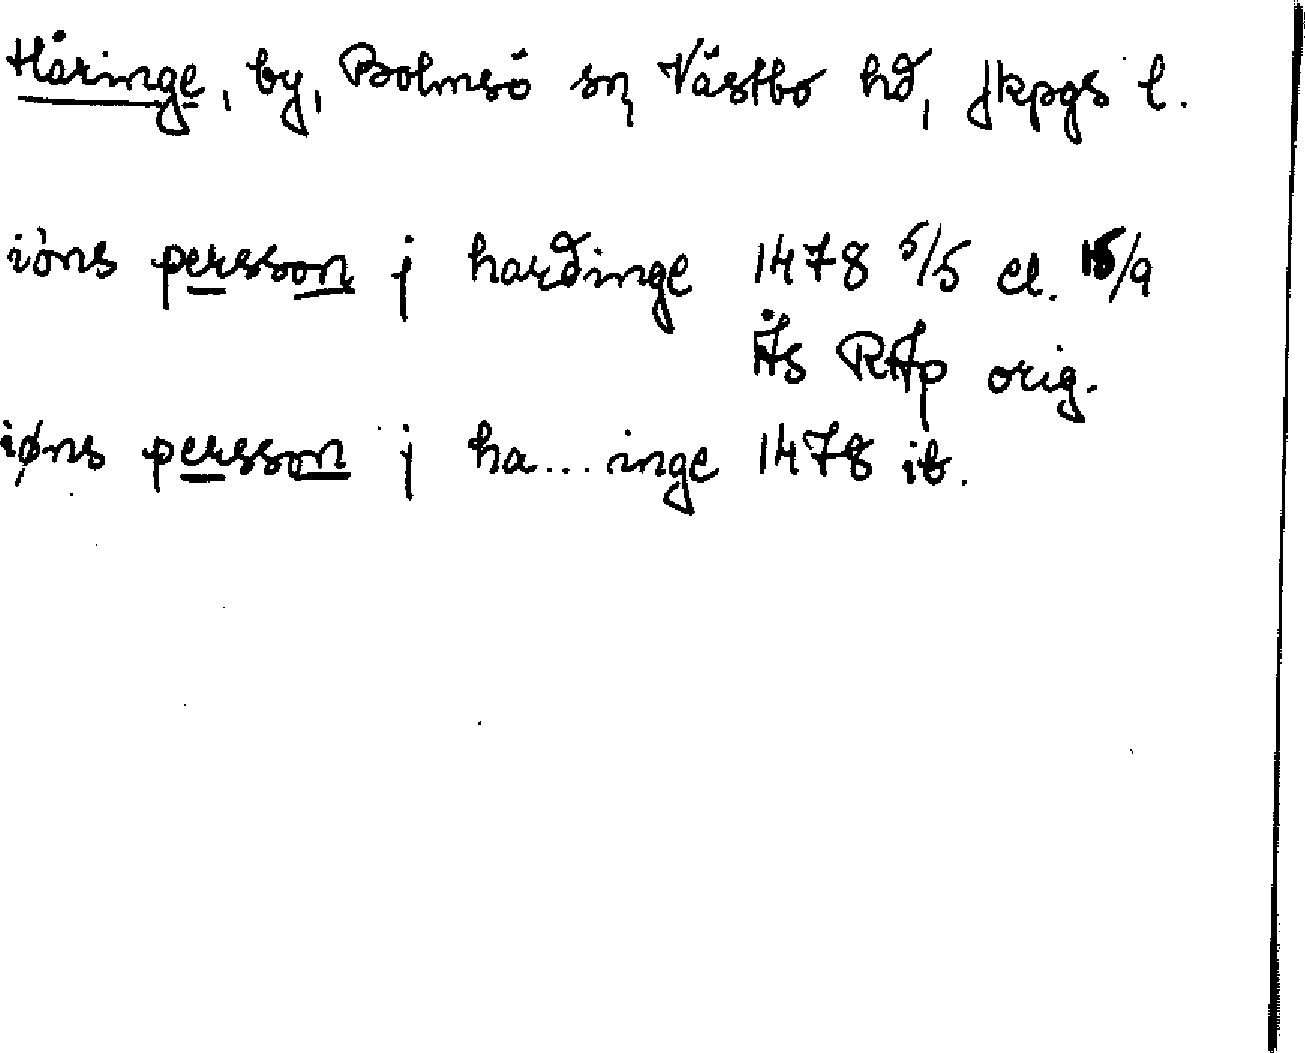 Håringe, by, Bolmsö sn, Västbo hd, Jkpgs l.
iöns persson j hardinge 1478 5/5 el. 15/9
Ås RAp orig.
iøns persson j ha... inge 1478 ib.